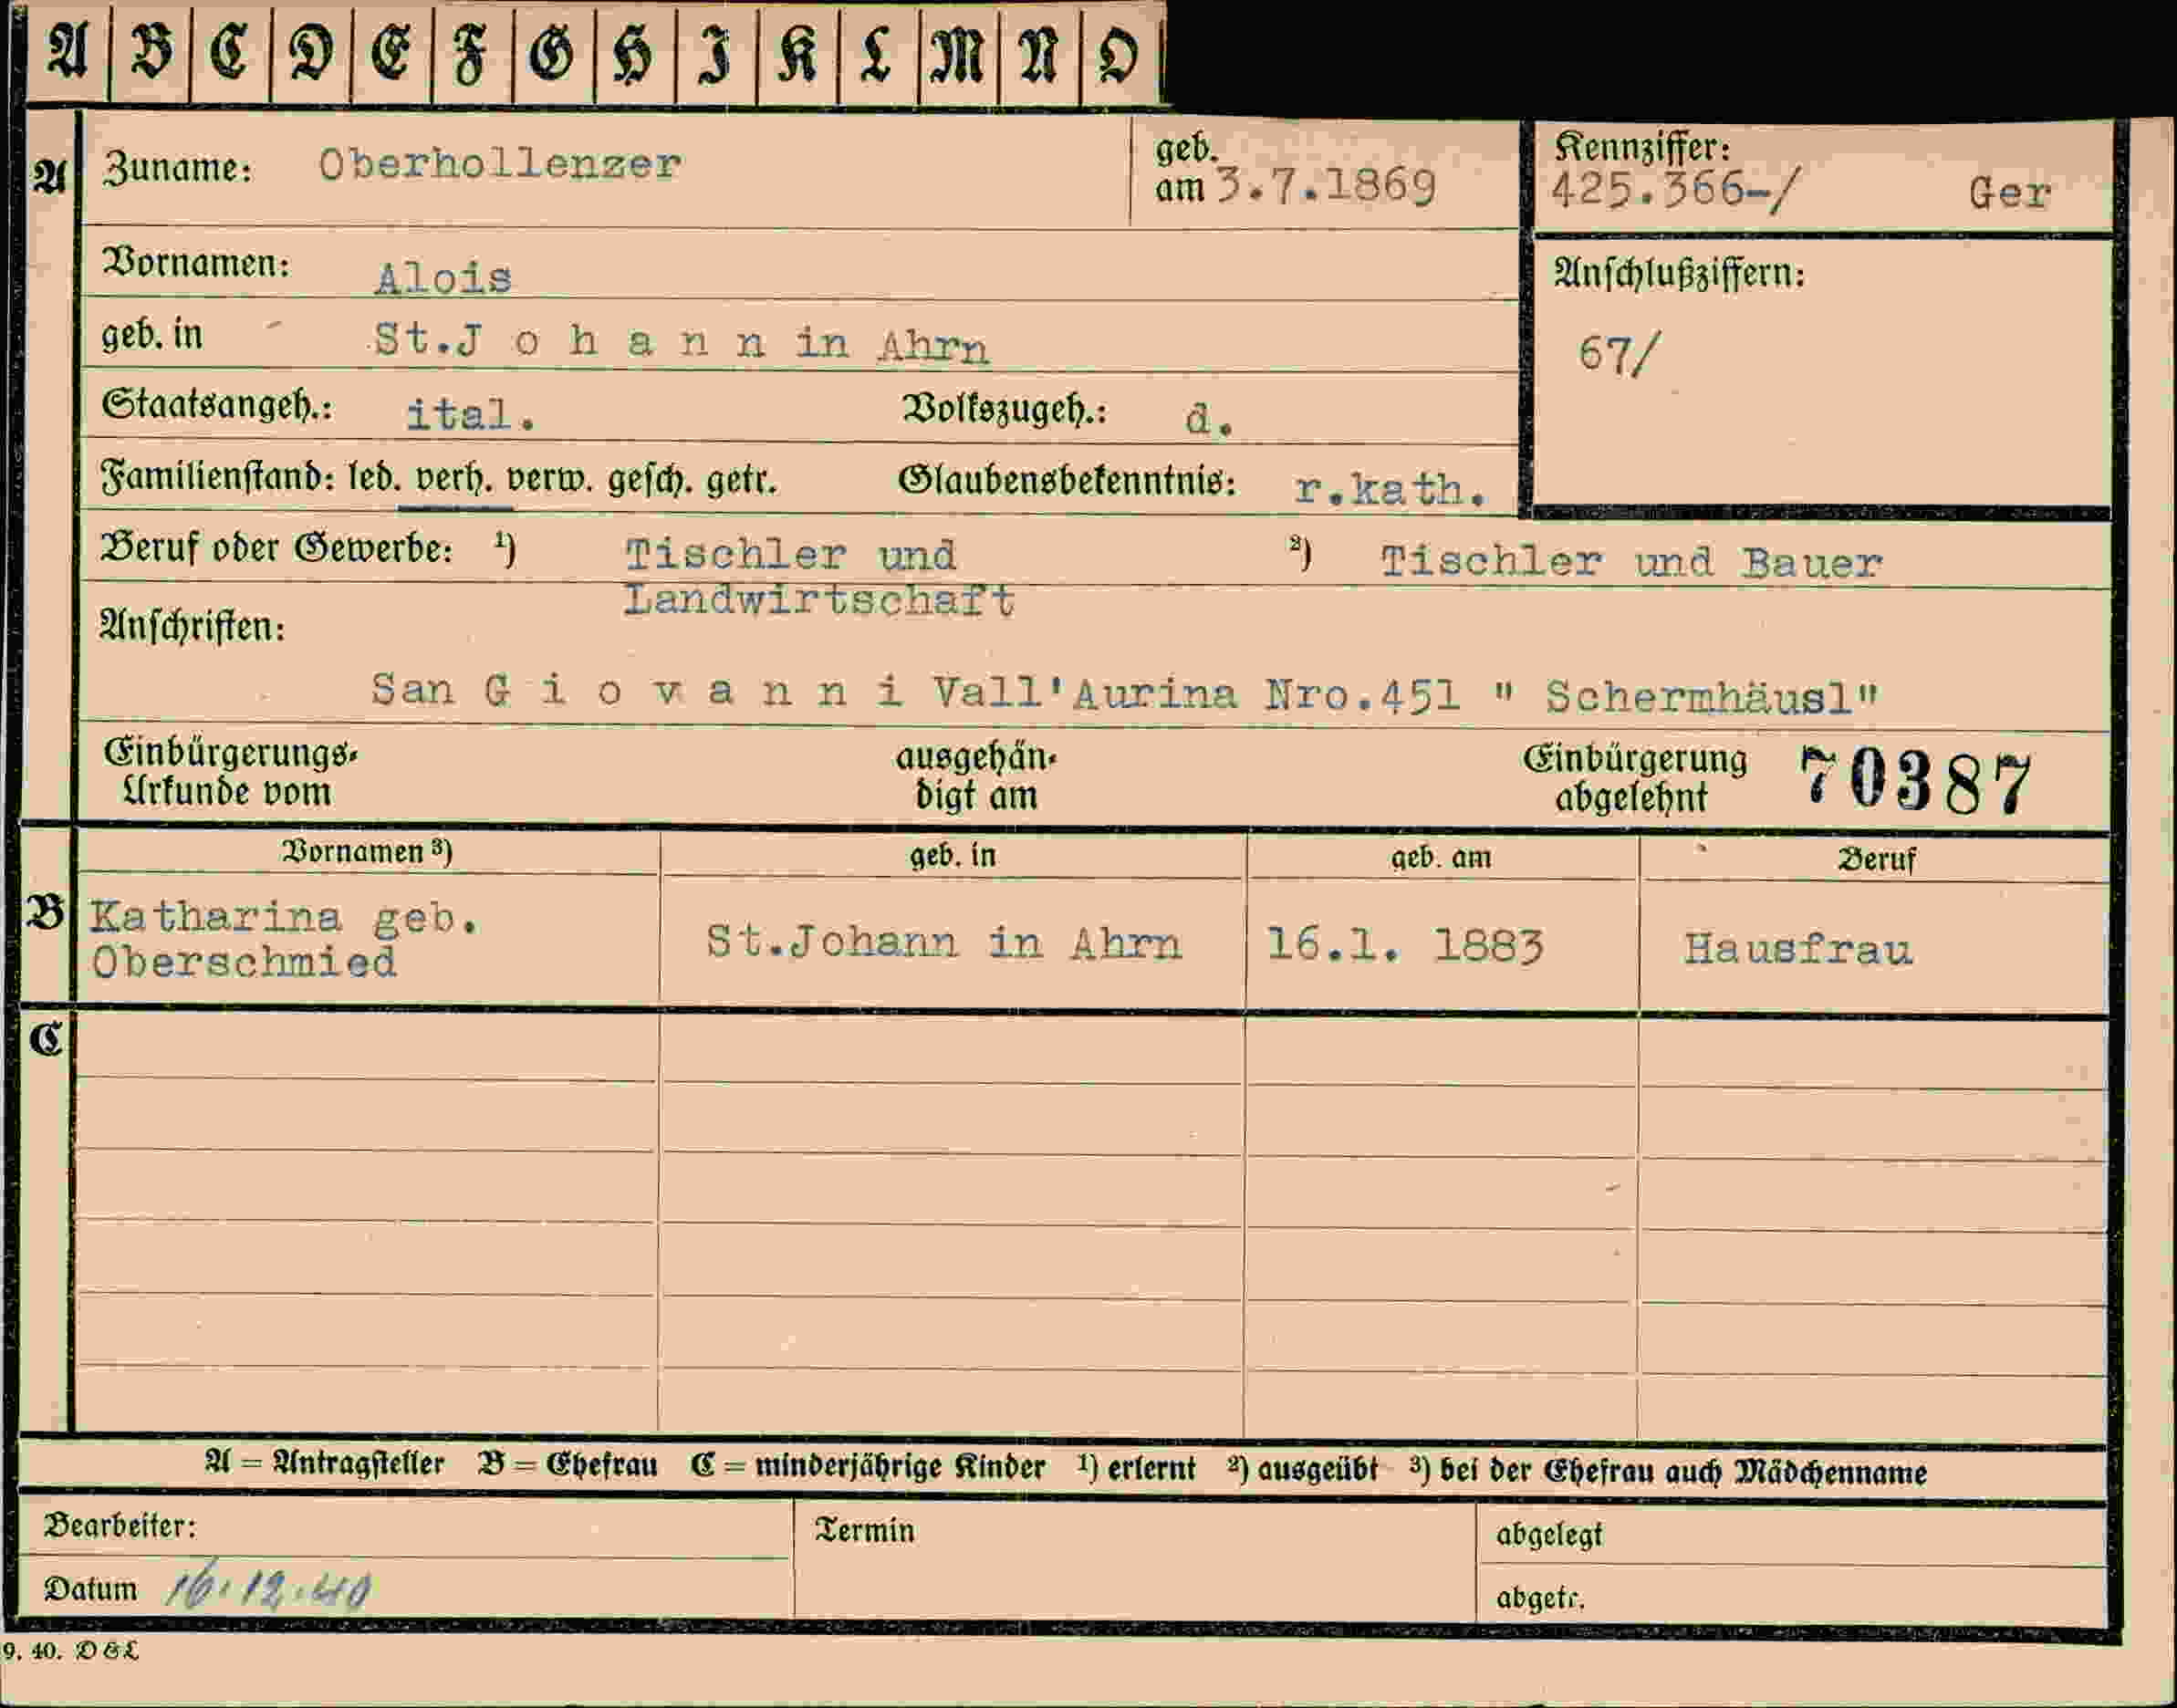 A B C D E F G H I K L M N O
A Zuname: Oberhollenzer geb. am 3.7.1869 Kennziffer: 425.366-/ Ger
Vornamen: Alois
Anschlußziffern:
geb. in St.J o h a n n in Ahrn
67/
Staatsangeh.: ital. Volkszugeh.: d.
Familienstand: led. verh. verw. gesch. getr. Glaubensbekenntnis: r.kath.
Beruf oder Gewerbe: ¹) Tischler und ²) Tischler und Bauer
Landwirtschaft
Anschriften:
San G i o v a n n i Vall'Aurina Nro.451 " Schermhäusl"
Einbürgerungs- ausgehän- Einbürgerung 70387
Urkunde vom digt am abgelehnt
Vornamen ³) geb. in geb. am Beruf
B Katharina geb.
Oberschmied St.Johann in Ahrn 16.1. 1883 Hausfrau
C
A = Antragsteller B = Ehefrau C = minderjährige Kinder ¹) erlernt ²) ausgeübt ³) bei der Ehefrau auch Mädchenname
Bearbeiter: Termin abgelegt
Datum 16.12.40 abgetr.
9. 40. D & L